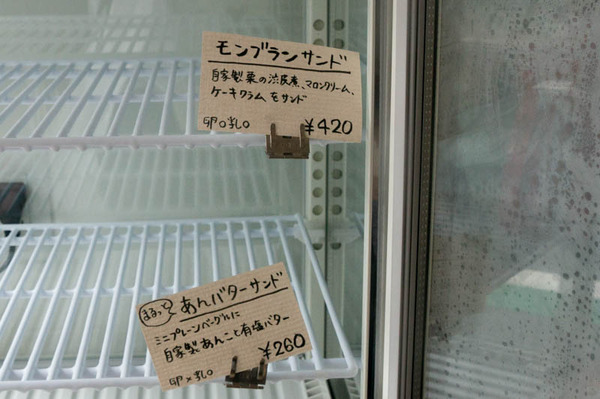 モンブランサンド
自家製栗の渋皮煮、マロンクリーム、
ケーキクラムをサンド
卵○乳○
¥420
まるっと
あんバターサンド
ミニプレーンベーグルに
自家製あんこと有塩バター
¥260
卵×乳○